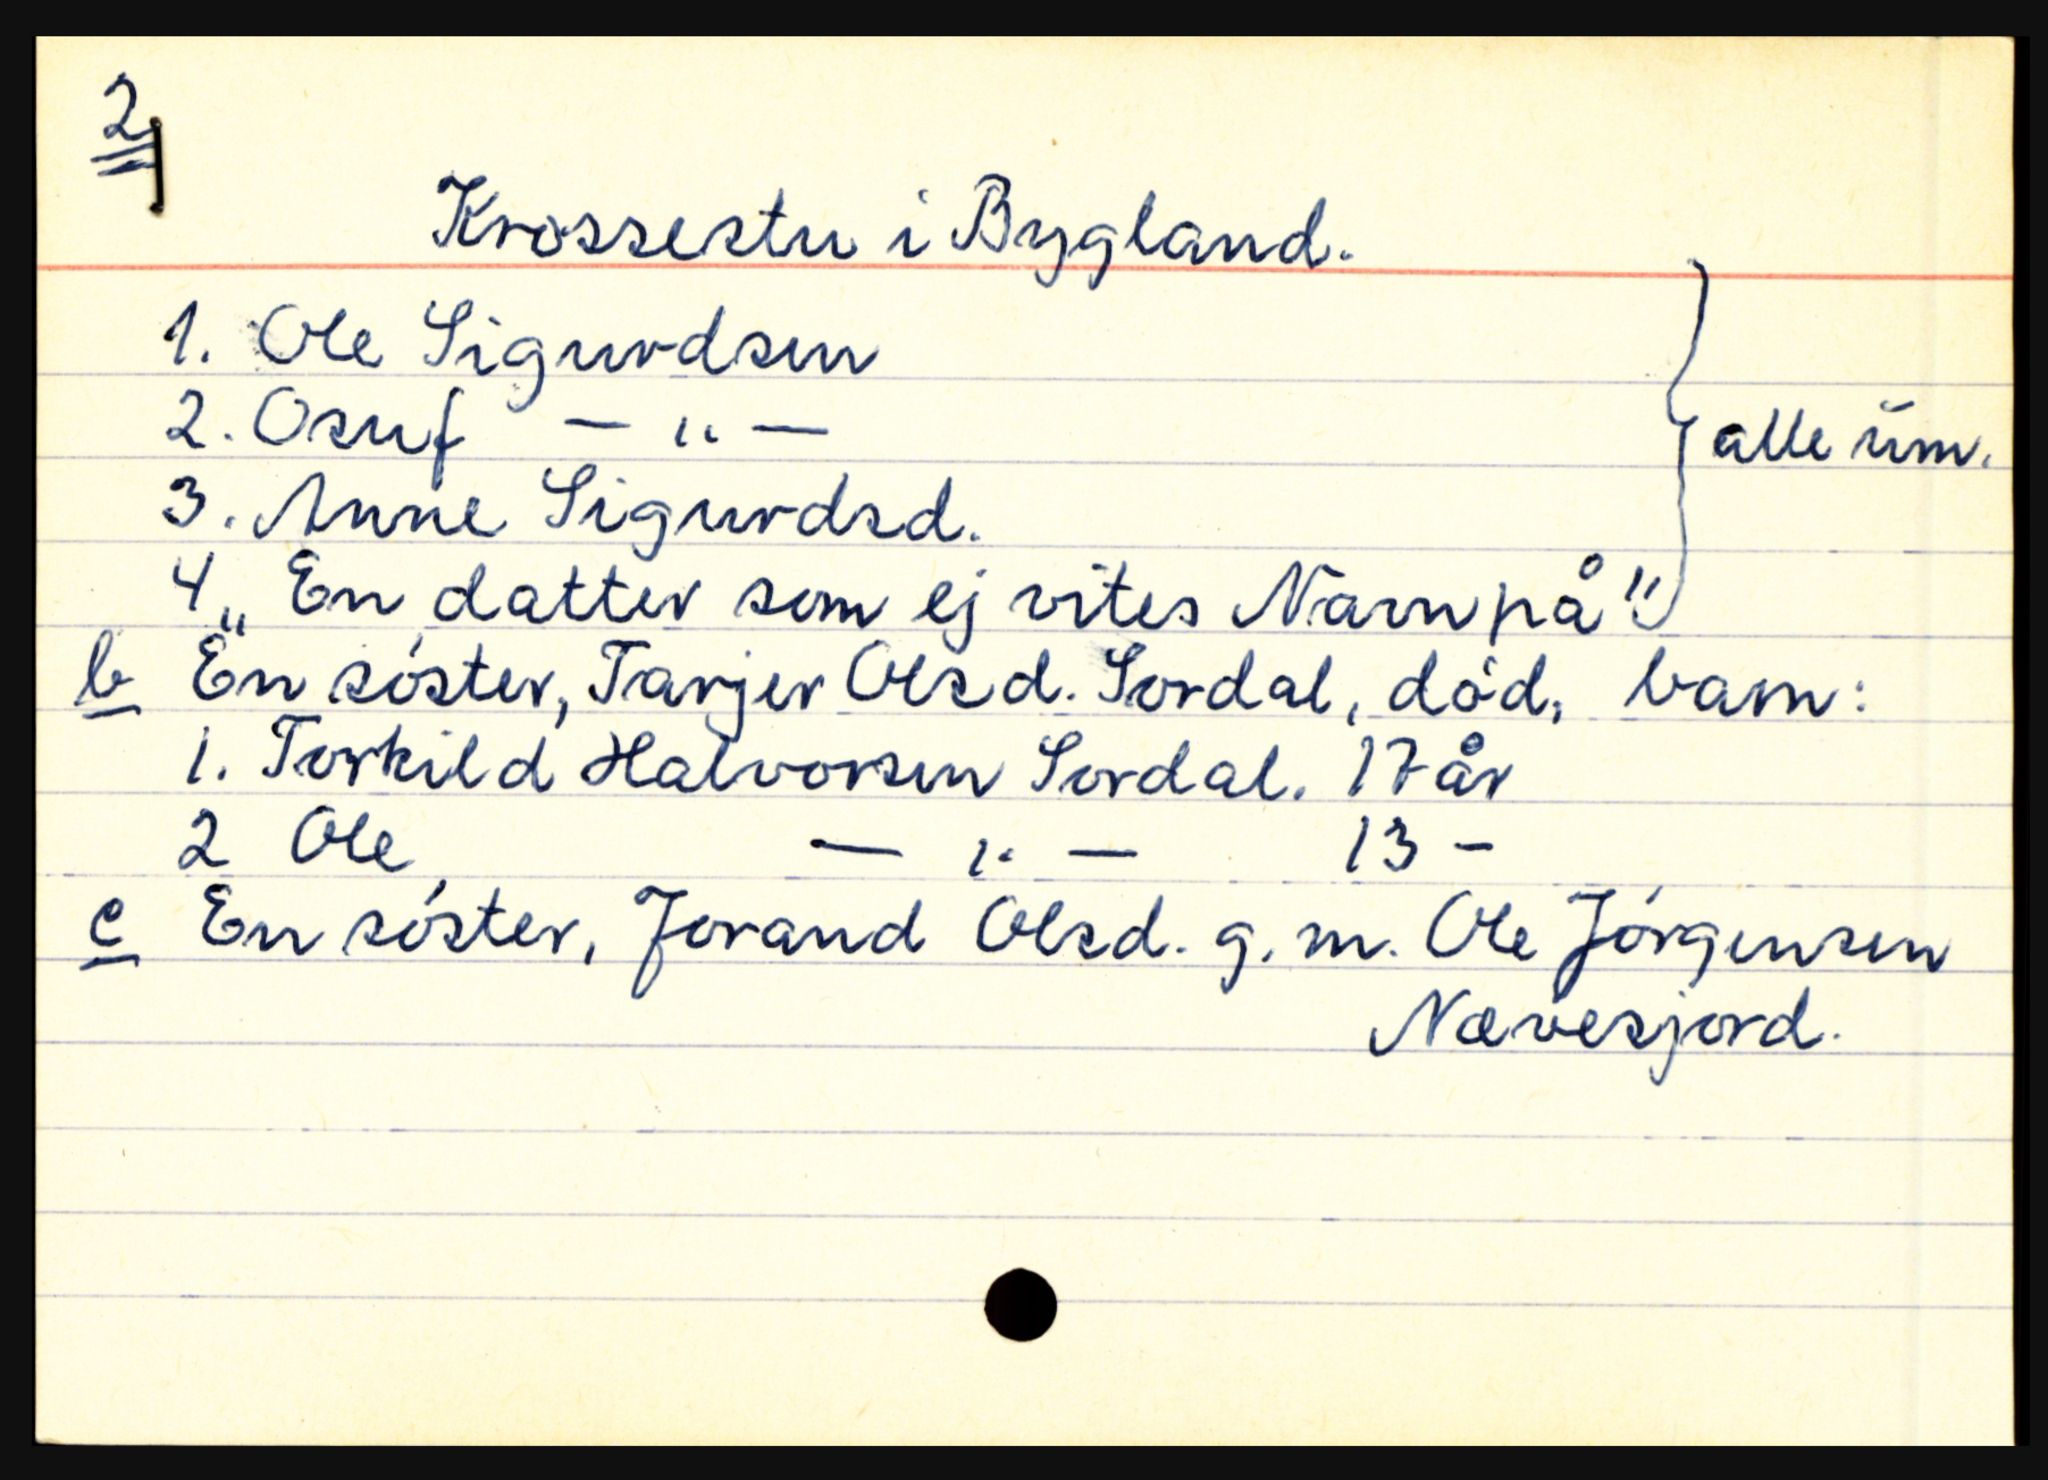 2
Krossestu i Bygland.
1. Ole Sigurdsen
2. Osuf — " —
3. Anne Sigurdsd.
alle úm.
4 „En datter som ej vites Navn på"
b En søster, Tarjer Olsd. Sordal, død, barn:
1. Torkild Halvorsen Sordal. 17 år
2 Ole — " — 13 -
c En søster, Jorand Olsd. g. m. Ole Jørgensen
Nævesjord.